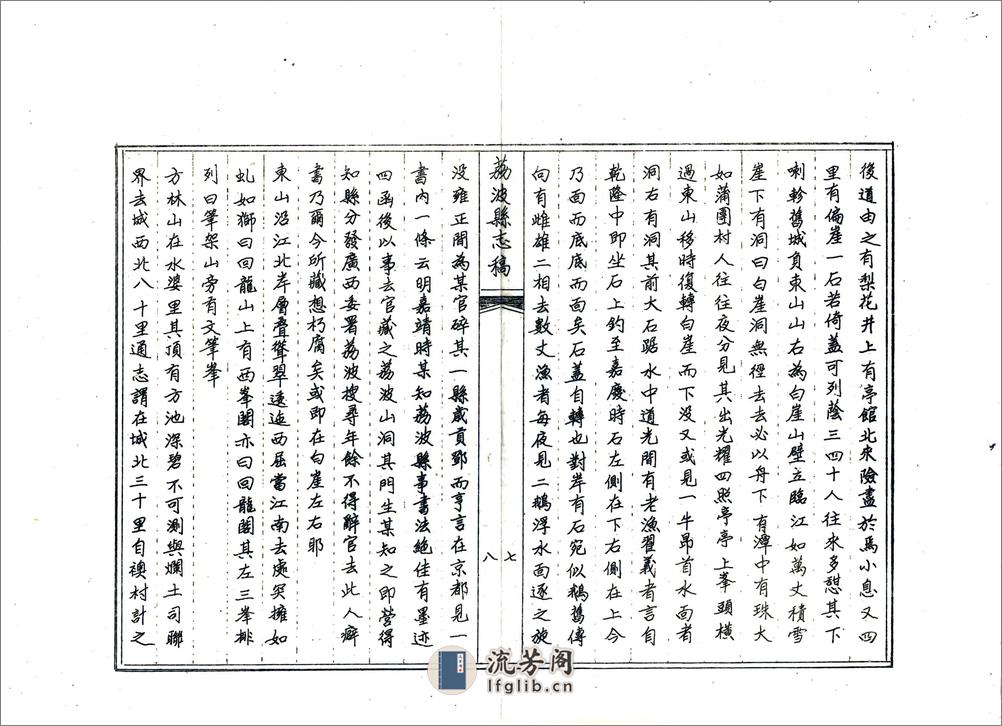 後道由之有梨花井上有亭館北來險盡於馬小息又四
里有偏崖一石若倚蓋可列蔭三四十人往來多憇其下
喇軫舊城負東山山右為白崖山壁立臨江如萬丈積雪
崖下有洞曰白崖洞無徑去去必以舟下有潭中有珠大
如蒲團村人往往夜分見其出光耀四照亭亭上峯頭橫
過東山移時復轉白崖而下没又或見一牛昂首水面者
洞右有洞其前大石踞水中道光間有老漁翟義者言自
乾隆中即坐石上釣至嘉慶時石左側在下右側在上今
乃面而底底而面矣石蓋自轉也對岸有石宛似鵝舊傳
向有雌雄二相去數丈漁者每夜見二鵝浮水面逐之旋
荔波縣志稿
七
八
没雍正間為某官碎其一縣歲貢鄧而亨言在京都見一
書内一條云明嘉靖時某知荔波縣事書法絕佳有墨迹
四函後以事去官藏之荔波山洞其門生某知之即營得
知縣分發廣西委署荔波搜尋年餘不得辭官去此人癖
書乃爾今所藏想朽腐矣或即在白崖左右耶
東山沿江北岸層疊聳翠逶迤西屈當江南去處突擁如
虬如獅曰回龍山上有西峯閣亦曰回龍閣其左三峯排
列曰筆架山旁有文筆峯
方林山在水婆里其頂有方池深碧不可測與爛土司聯
界去城西北八十里通志謂在城北三十里自襖村計之
流芳阁
lfglib.cn